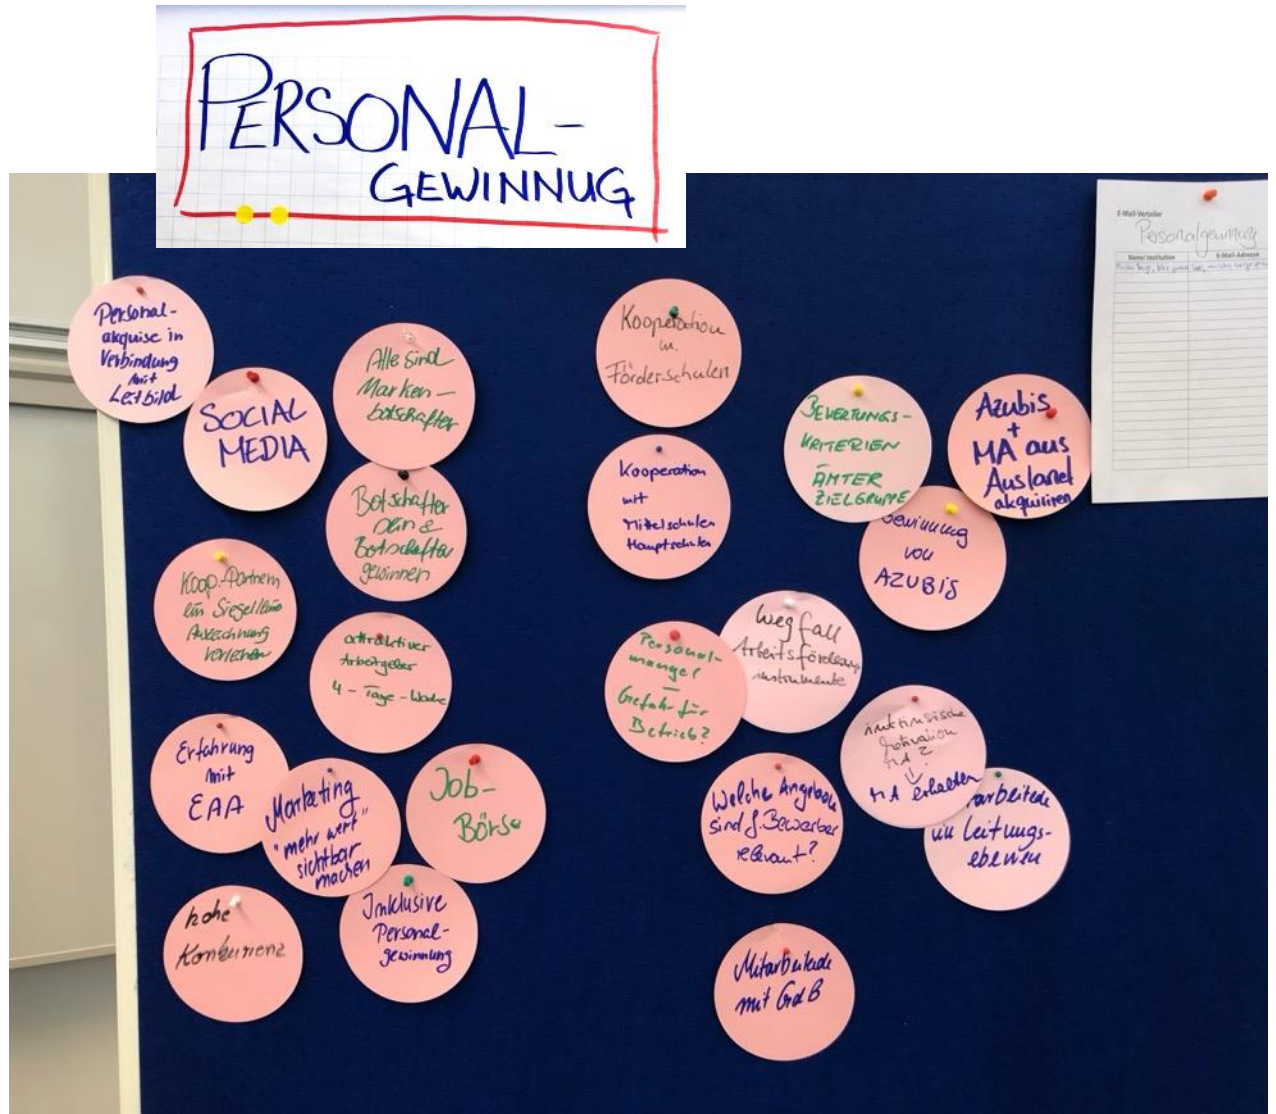 PERSONAL-
GEWINNUG
E-Mail-Verteiler
Personalgewinnung
Name/ Institution
E-Mail-Adresse
Personal-
akquise in
Verbindung
mit
Leitbild
SOCIAL
MEDIA
Alle sind
Marken-
botschafter
Botschafter
sein &
Botschafter
gewinnen
Koop.-Partnern
ein Siegel/eine
Auszeichnung
verleihen
attraktiver
Arbeitgeber
4-Tage-Woche
Erfahrung
mit
EAA
Marketing
"mehr wert"
sichtbar
machen
Job-
Börse
hohe
Konkurrenz
Inklusive
Personal-
gewinnung
Kooperation
m.
Förderschulen
Kooperation
mit
Mittelschulen
Hauptschulen
BEWERTUNGS-
KRITERIEN
–
ÄMTER
ZIELGRUPPE
Azubis
+
MA aus
Ausland
akquirieren
Gewinnung
von
AZUBIS
Personal-
mangel
–
Gefahr für
Betrieb?
Wegfall
Arbeitsförderungs
instrumente
intrinsische
Motivation
MA?
↓
MA erhalten
Welche Angebote
sind f. Bewerber
relevant?
arbeitende
in Leitungs-
ebenen
Mitarbeitende
mit GdB